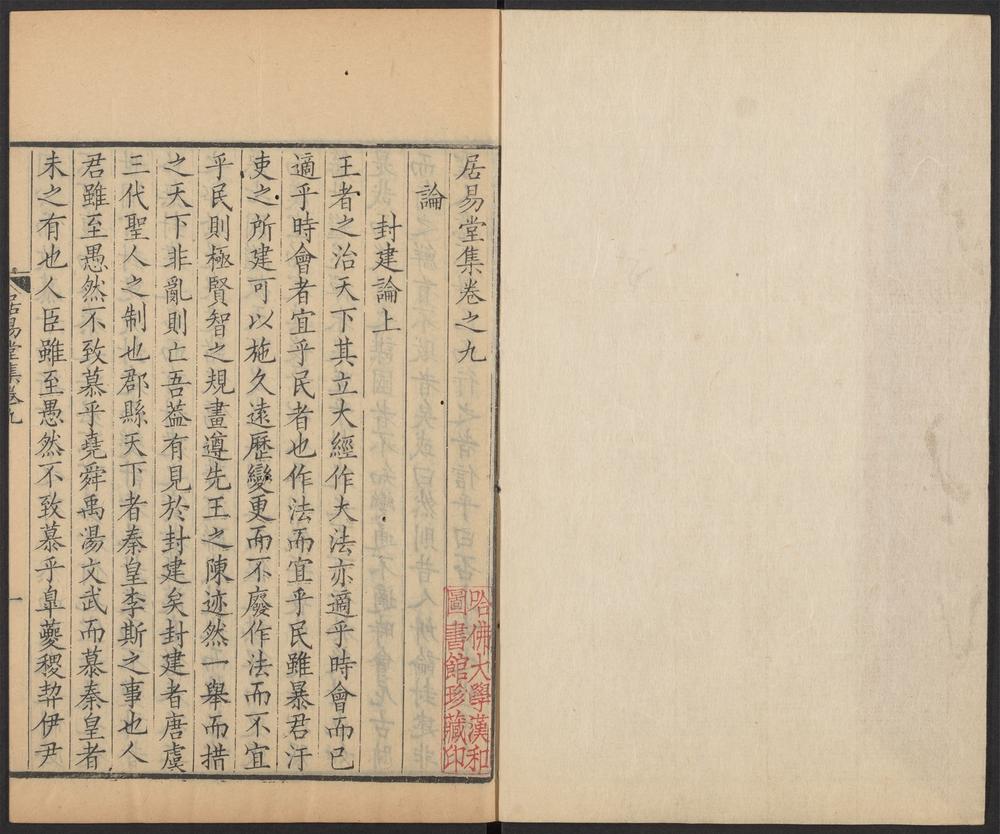 居易堂集卷之九
論
封建論上
王者之治天下其立大經作大法亦適乎時會而已
適乎時會者宜乎民者也作法而宜乎民雖暴君汙
吏之所建可以施久遠歷變更而不廢作法而不宜
乎民則極賢智之規畫遵先王之陳迹然一舉而措
之天下非亂則亡吾葢有見於封建矣封建者唐虞
三代聖人之制也郡縣天下者秦皇李斯之事也人
君雖至愚然不致慕乎堯舜禹湯文武而慕秦皇者
未之有也人臣雖至愚然不致慕乎臯夔稷契伊尹
居易堂集卷九
一
哈佛大學漢和
圖書館珍藏印